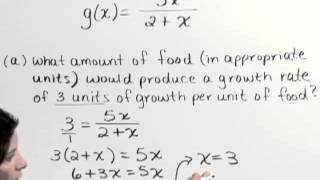 g(x) = 5x / 2 + x
(a) What amount of food (in appropriate
units) would produce a growth rate
of 3 units of growth per unit of food?
3 / 1 = 5x / 2 + x
3(2 + x) = 5x
6 + 3x = 5x
x = 3